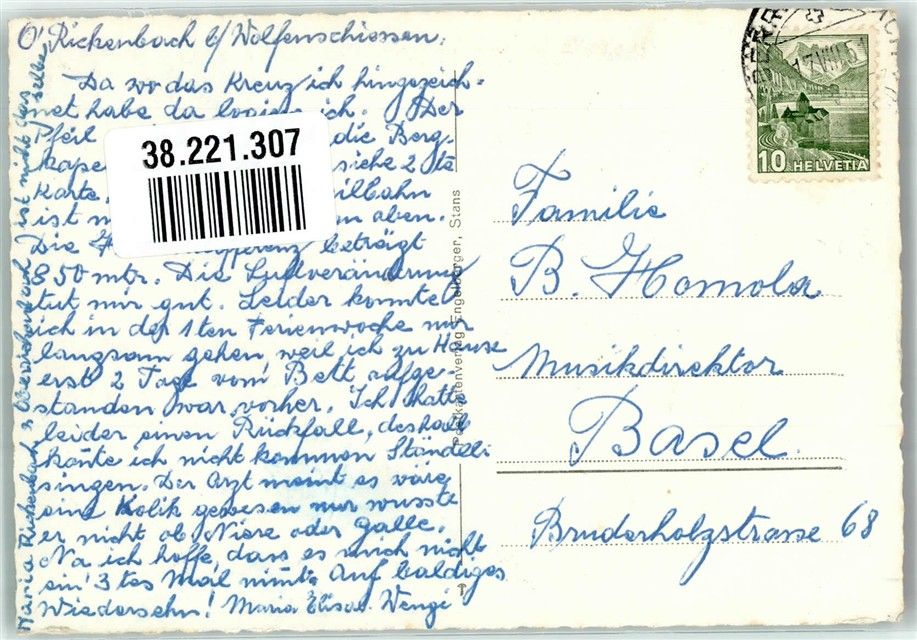 O'Rickenbach b/ Wolfenschiessen,
Da wo das Kreuz ich hingezeich-
net habe da logier ich. Der
Pfeil die Berg-
kape siehe 2te
Karte, ilbahn
ist n oben.
Die beträgt
850 mtr. Die Luftveränderung
tut mir gut. Leider konnte
ich in der 1ten Ferienwoche nur
langsam gehen weil ich zu Hause
erst 2 Tage vom Bett aufge-
standen war vorher. Ich hatte
leider einen Rückfall, deshalb
konte ich nicht kommen Ständeli
singen. Der Arzt meint es wäre
eine Kolik gewesen nur wusste
er nicht ob Niere oder Galle.
Na ich hoffe, dass es mich nicht
ein 3tes Mal nimt. Auf baldiges
Wiedersehn! Maria Wengi
Maria Rickenbach & Oberrickenbach ist nicht das selbe,
38.221.307
Postkartenverlag Engelberger, Stans
10 HELVETIA
Familie
B. Homola
Musikdirektor
Basel.
Bruderholzstrasse 68